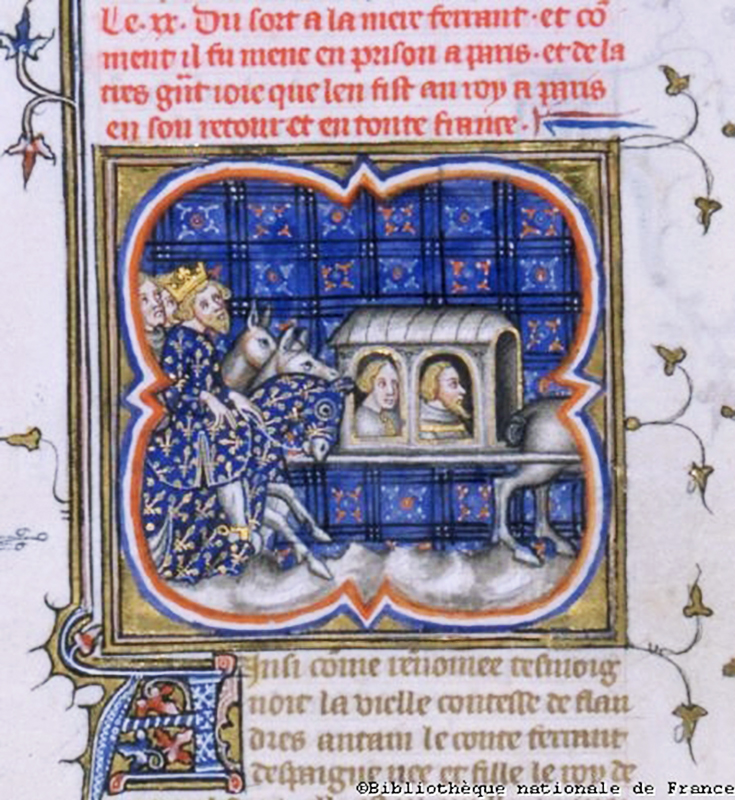 Le .xx. Du sort a la mere ferrant. et cō
ment il fu mene en prison a paris. et de la
tres gñt ioie que len fist au roy a paris
en son retour et en toute france.
Ainsi cōme renomee tesmoig
noit la vielle contesse de flan
dres antain le conte ferrant
despaigne et fille le roy de
©Bibliothèque nationale de France